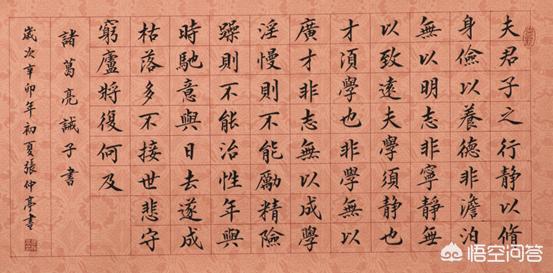 夫君子之行靜以脩
身儉以養德非澹泊
無以明志非寧靜無
以致遠夫學須靜也
才須學也非學無以
廣才非志無以成學
淫慢則不能勵精險
躁則不能治性年與
時馳意與日去遂成
枯落多不接世悲守
窮廬將復何及
諸葛亮誡子書
歲次辛卯年初夏張仲亭書
悟空问答